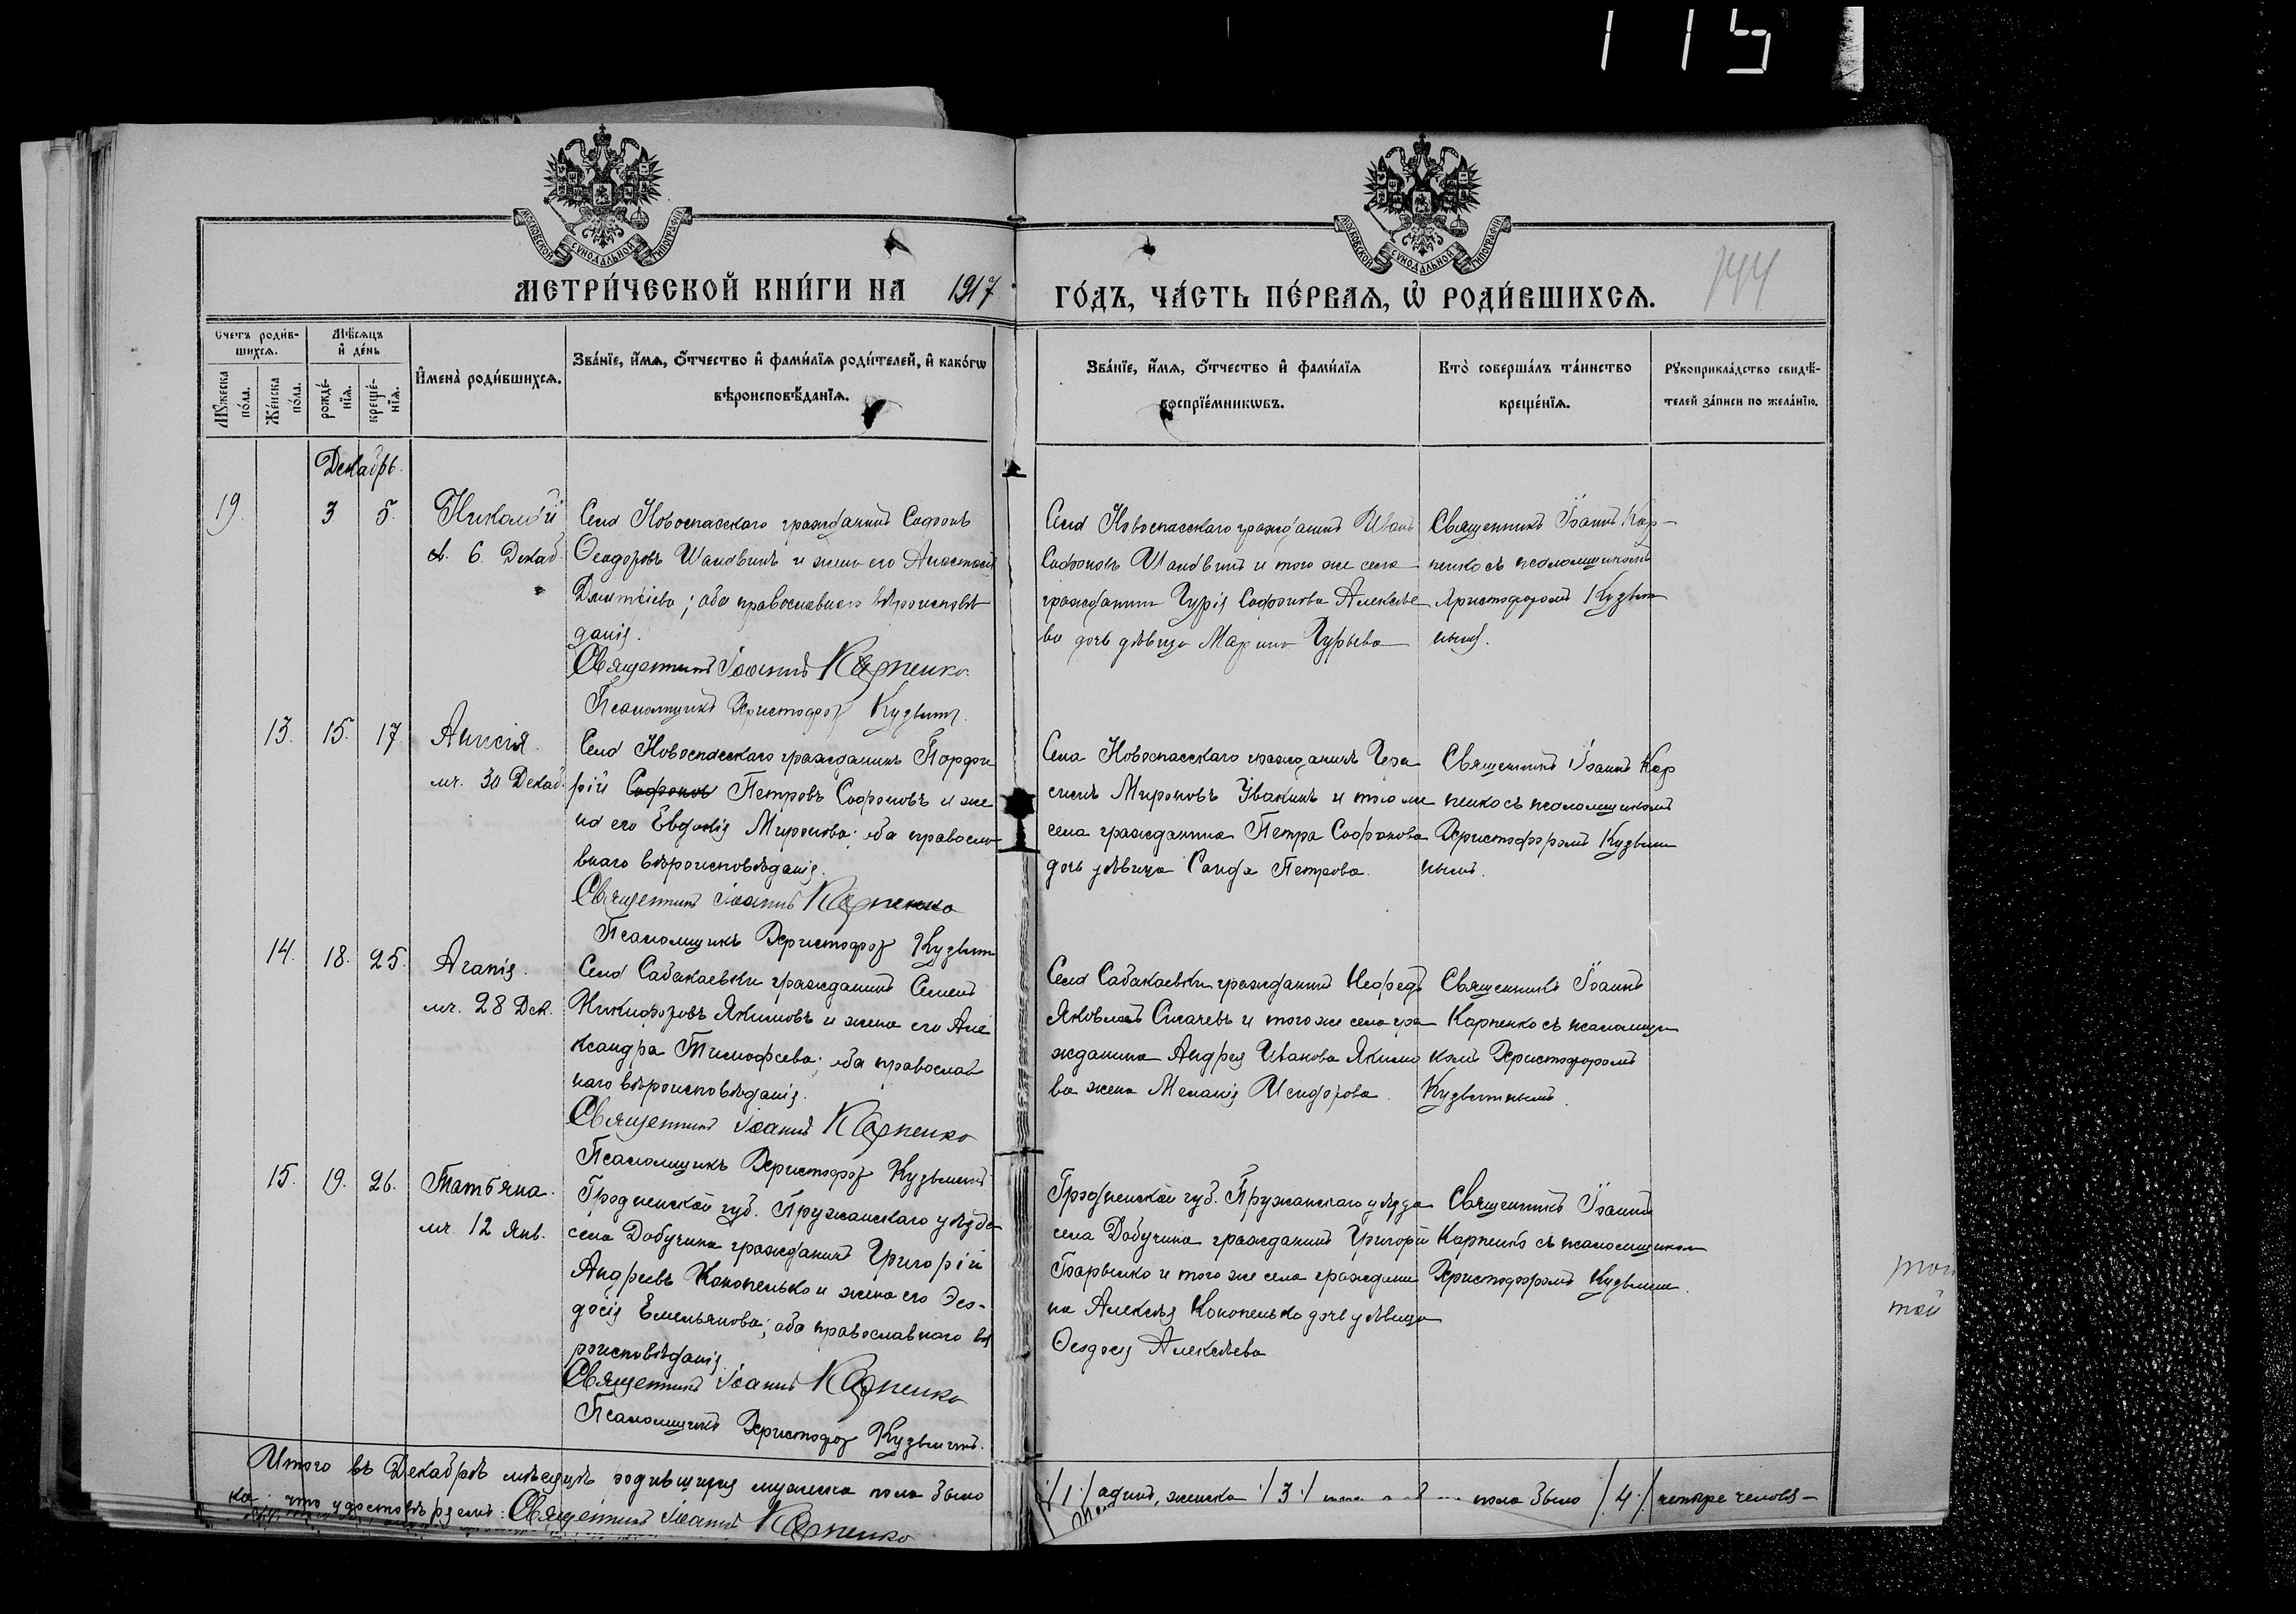 115
МОСКОВСКОЙ СѴНОДАЛЬНОЙ ТИПОГРАФІИ
МОСКОВСКОЙ СѴНОДАЛЬНОЙ ТИПОГРАФІИ
МЕТРИ́ЧЕСКОЙ КНИ́ГИ НА 1917 ГО́ДЪ, ЧА́СТЬ ПЕ́РВАЯ, Ѡ҆ РОДИ́ВШИХСЯ.
144
Счетъ роди́в-
шихся.
Мѣ́сяцъ
и҆ де́нь
Мꙋ́жеска
по́ла.
Же́нска
по́ла.
рожде́-
нїя.
креще́-
нїя.
И҆мена̀ роди́вшихся.
Зва́нїе, и҆́мя, ѻ҆́тчество и҆ фами́лїя роди́телей, и҆ како́гѡ
вѣроисповѣ́данїя.
Зва́нїе, и҆́мя, ѻ҆́тчество и҆ фами́лїя
воспрїе́мникѡвъ.
Кто̀ соверша́лъ та́инство
креще́нїя.
Рꙋкоприкла́дство свидѣ́-
телей за́писи по жела́нїю.
Декабрь.
19. 3 5.
Николай
св. 6. Декаб.
Села Новоспасскаго гражданинъ Софронъ
Ѳеодоровъ Шаловинъ и жена его Анастасія
Дмитріева; оба православнаго вѣроисповѣ
данія.
Священникъ Іоаннъ Карпенко.
Псаломщикъ Христофоръ Кузьмин.
Села Новоспасскаго гражданинъ Иванъ
Софроновъ Шаловинъ и того же села
гражданина Гурія Софронова Алексѣе
ва дочь дѣвица Марина Гурьева
Священникъ Іоаннъ Кар-
пенко съ псаломщикомъ
Христофоромъ Кузьми
нымъ.
13. 15. 17
Анисія.
мч. 30 Декаб.
Села Новоспасскаго гражданинъ Порфи
рій Софронов Петровъ Софроновъ и же
на его Евдокія Миронова; оба правосла
внаго вѣроисповѣданія.
Священникъ Іоаннъ Карпенко
Псаломщикъ Христофоръ Кузьмин
Села Новоспасскаго гражданинъ Гера
симъ Мироновъ Ивакинъ и того же
села гражданина Петра Софронова
дочь дѣвица Петрова.
Священникъ Іоаннъ Кар
пенко съ псаломщикомъ
Христофоромъ Кузьми
нымъ.
14. 18. 25.
Агапія.
мч. 28 Дек.
Села Сабакаевки гражданинъ Семенъ
Никифоровъ Якимовъ и жена его Але
ксандра Тимофеева; оба православ
наго вѣроисповѣданія.
Священникъ Іоаннъ Карпенко
Псаломщикъ Христофоръ Кузьминъ
Села Сабакаевки гражданинъ
Яковлевъ Сигачевъ и того же села гра
жданина Андрея Иванова Якимо
ва жена Меланія Исидорова.
Священникъ Іоаннъ
Карпенко съ псаломщи
комъ Христофоромъ
Кузьминымъ.
15. 19. 26.
Татьяна.
мч. 12 Янв.
Гродненской губ. Пружанскаго уѣзда
села Добучина гражданинъ Григорій
Андреевъ Конопелько и жена его Ѳео-
досія Емельянова; оба православнаго вѣ
роисповѣданія.
Священникъ Іоаннъ Карпенко
Псаломщикъ Христофоръ Кузьминъ.
Гродненской губ. Пружанскаго уѣзда
села Добучина гражданинъ Григорій
и того же села граждани
на Алексѣя Конопелько дочь дѣвица
Ѳеодосія Алексѣева
Священникъ Іоаннъ
Карпенко съ псаломщиком
Христофоромъ Кузьмин.
Итого въ Декабрѣ мѣсяцѣ родившихся мужеска пола было /1/ одинъ, женска /3/ пола было /4/ четыре человѣ-
ка. что удостовѣряемъ: Священникъ Іоаннъ Карпенко